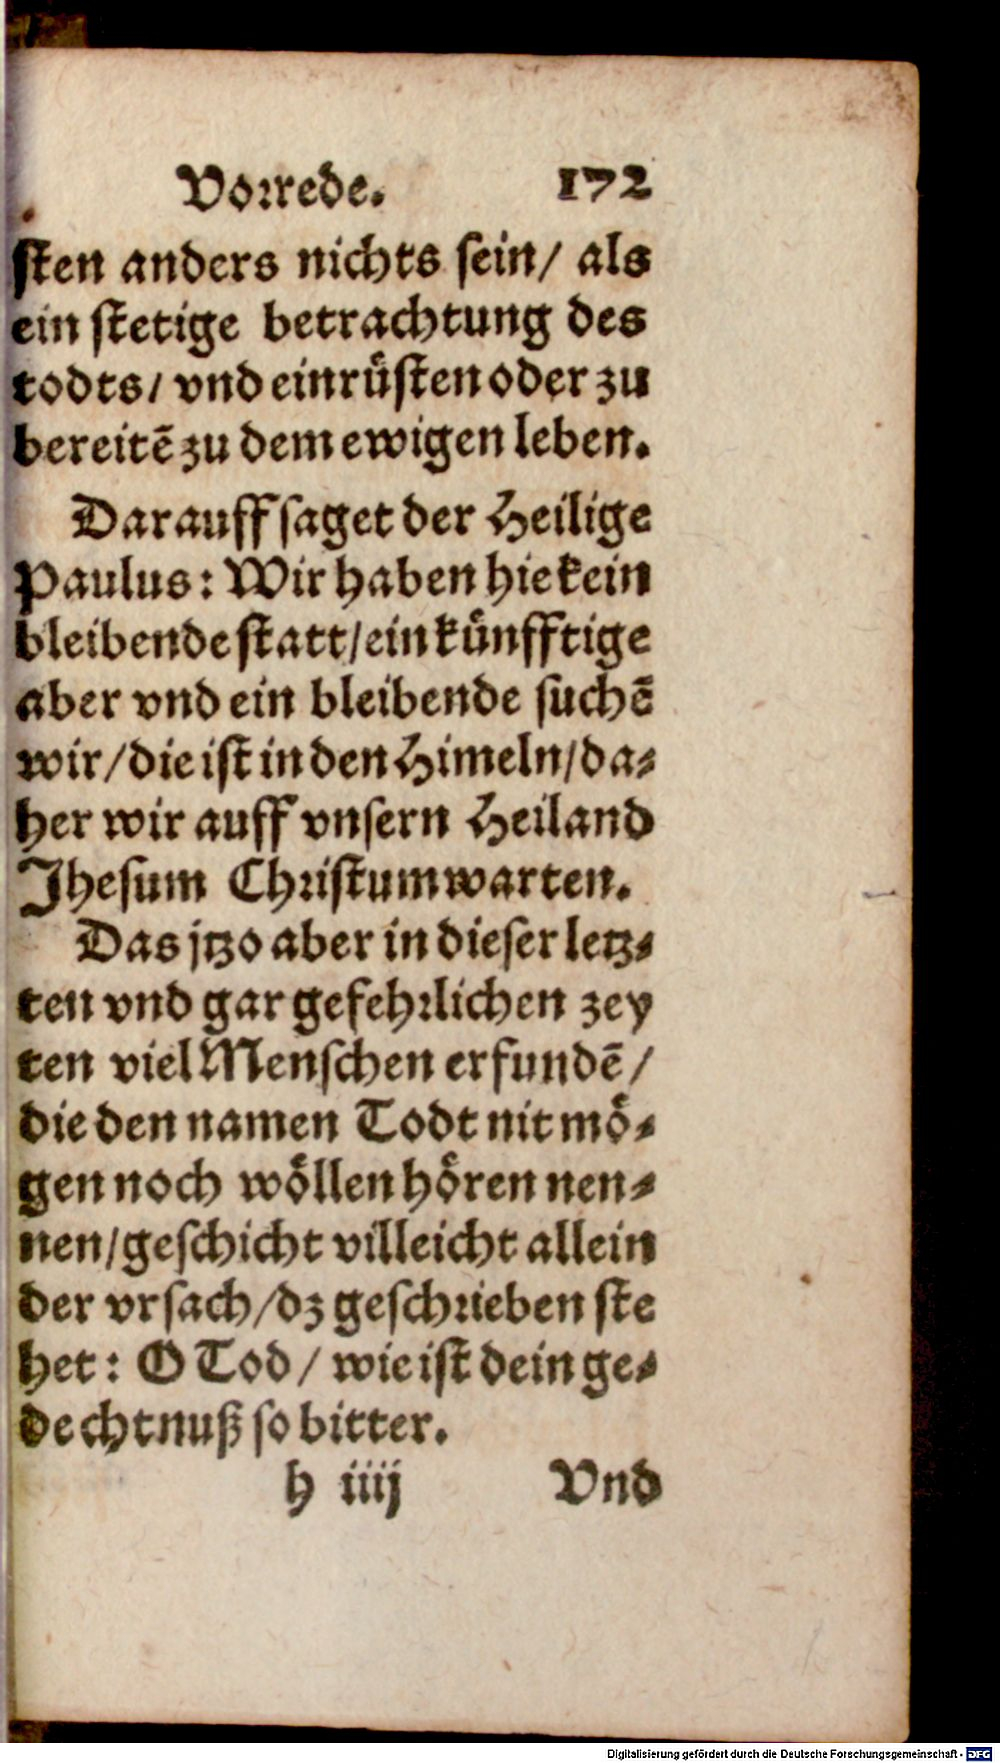 Vorrede. 172
sten anders nichts sein/ als
ein stetige betrachtung des
todts/ vnd einrüsten oder zu
bereitē zu dem ewigen leben.
Darauff saget der Heilige
Paulus: Wir haben hie kein
bleibende statt/ ein künfftige
aber vnd ein bleibende suchē
wir/ die ist in den Himeln/ da⸗
her wir auff vnsern Heiland
Jhesum Christum warten.
Das jtzo aber in dieser letz⸗
ten vnd gar gefehrlichen zey
ten viel Menschen erfundē/
die den namen Todt nit mö⸗
gen noch wöllen hören nen⸗
nen/ geschicht villeicht allein
der vrsach/ dz geschrieben ste
het: O Tod/ wie ist dein ge⸗
dechtnuß so bitter.
h iiij Vnd
Digitalisierung gefördert durch die Deutsche Forschungsgemeinschaft - DFG